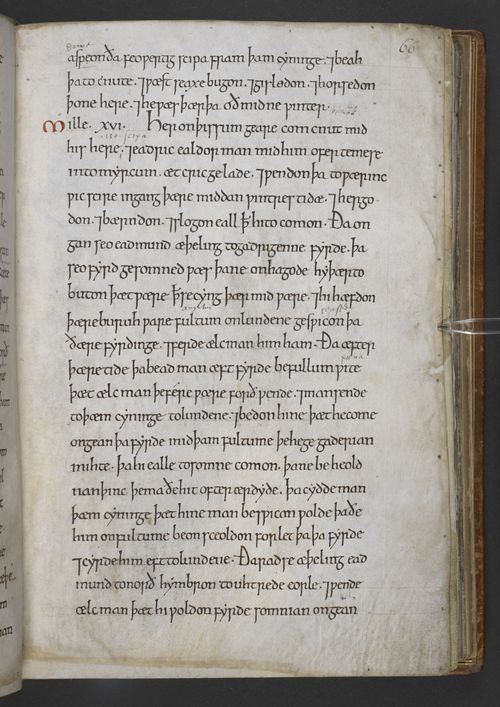 66
aspeon ða feoƿertig scipa fram þam cyninge · ⁊ beah
þa to cnute · ⁊ ƿæst seaxe bugon · ⁊ gislodon · ⁊ horsedon
þone here · ⁊ he ƿæs þær þa oð midne ƿinter ·
Mille · xvi · Her on þissum geare com cnut mid
his here · ⁊ eadric ealdor man mid him ofer temese
into myrcum · æt cricgelade · ⁊ ƿendon þa to ƿærinc
ƿic scire ingang þære middan ƿintres tidæ · ⁊ hergo
don · ⁊ bærndon · ⁊ slogon eall ꝥ hi to comon · Ða on
gan se eadmund æþeling to gadrigenne fyrde · þa
seo fyrd gesomned ƿæs þa ne onhagode hy þær to
buton þæt ƿære ꝥ se cyng þær mid ƿære · ⁊ hi hæfdon
þære buruh ƿare fultum on lundene gesƿicon þa
ðære fyrdinge · ⁊ ferde ælc man him ham · Ða æfter
þære tide þa bead man æft fyrde be fullum ƿite
þæt ælc man þe fére ƿære forð ƿende · ⁊ man sende
to þæm cyninge to lundene · ⁊ bedon hine þæt he come
ongean þa fyrde mid þam fultume þe he gegaderian
mihte · þa hi ealle tosomne comon · þa ne beheold
nan þinc þe ma ðe hit ofter ær dyde · þa cydde man
þæm cyninge þæt hine man besƿicon ƿolde þa ðe
him on fultume beon sceoldon forlet þa þa fyrde
⁊ cyrde him eft to lundene · Ða rad se æþeling ead
mund to norð hymbron to uhtrede eorle · ⁊ ƿende
ælc man þæt hi ƿoldon fyrde somnian ongean